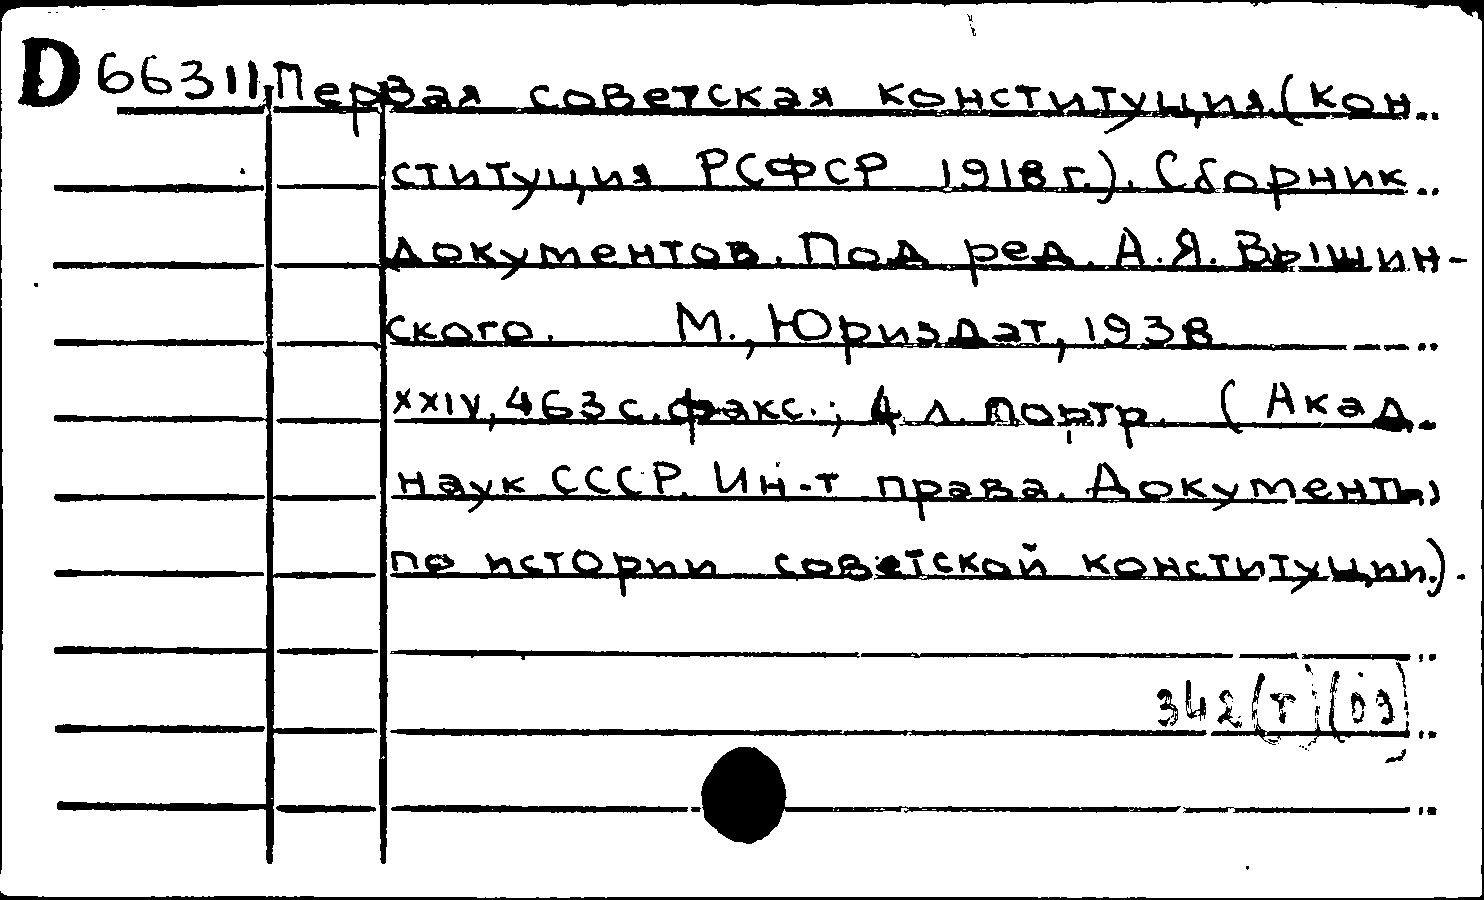 D 66311 Первая советская конституция (кон
ституция РСФСР 1918 г.). Сборник
документов. Под ред. А.Я. Вышин-
ского. М., Юриздат, 1938
XXIV, 463 с. факс.; 4 л. портр. (Акад.
наук СССР. Ин-т права. Документы
по истории советской конституции).
342(т)(09)